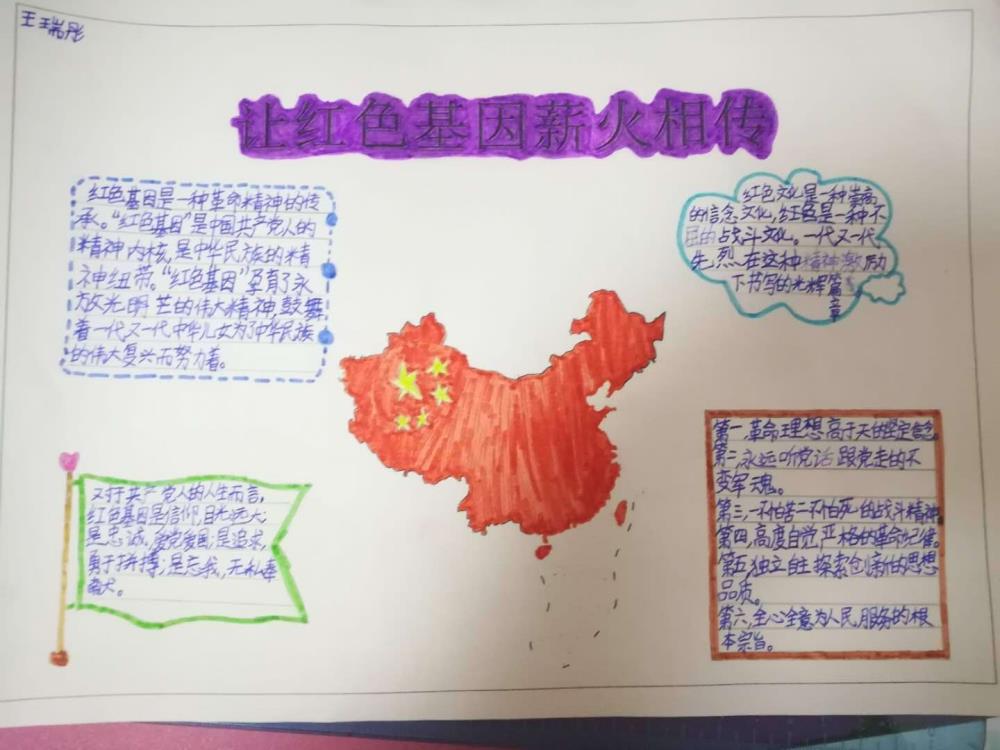 王瑞彤
让红色基因薪火相传
红色基因是一种革命精神的传
承。“红色基因”是中国共产党人的
精神内核,是中华民族的精
神纽带。“红色基因”孕育了永
放光明芒的伟大精神,鼓舞
着一代又一代中华儿女为了中华民族
的伟大复兴而努力着。
红色文化是一种崇高
的信念文化,红色是一种不
屈的战斗文化。一代又一代
先烈在这种精神激励
下书写的光辉篇
章
对于共产党人的人生而言,
红色基因是信仰,目光远大;
是忠诚,爱党爱国;是追求,
勇于拼搏;是忘我,无私奉
献。
第一,革命理想高于天的坚定信念。
第二,永远听党话跟党走的不
变军魂。
第三,一不怕苦二不怕死的战斗精神
第四,高度自觉严格的革命纪律。
第五,独立自主探索创新的思想
品质。
第六,全心全意为人民服务的根
本宗旨。